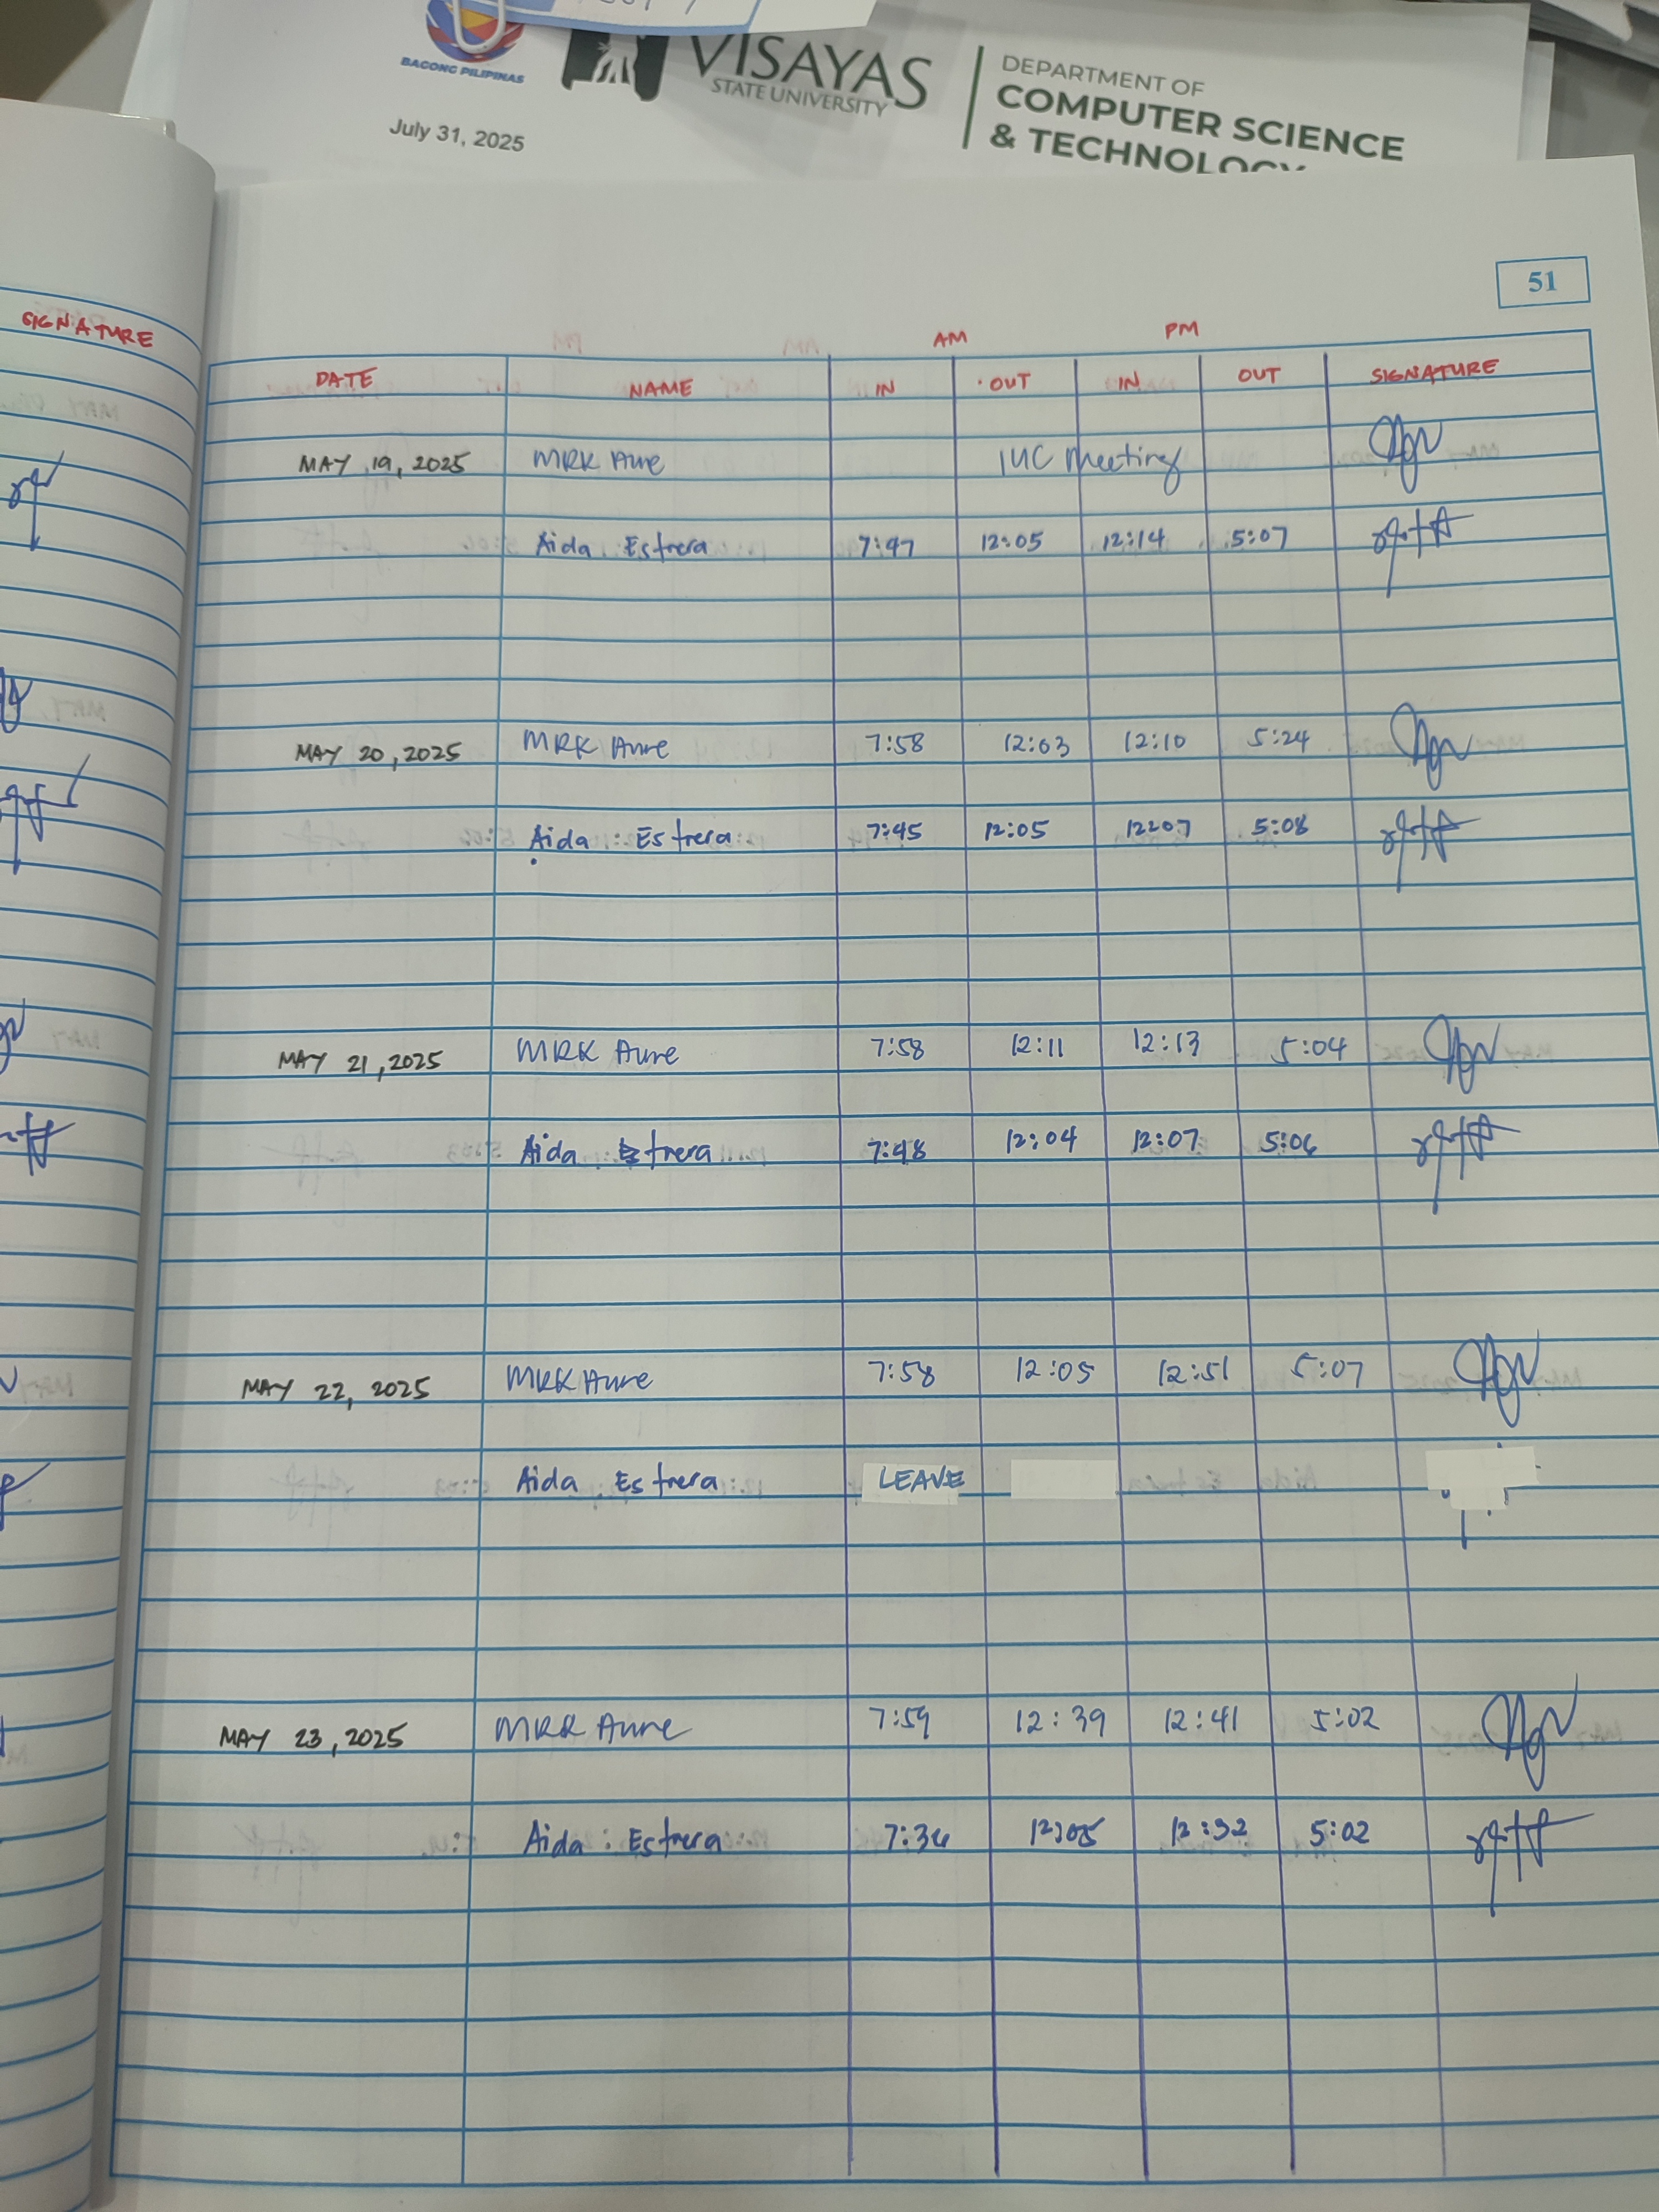 BAGONG PILIPINAS
VISAYAS
STATE UNIVERSITY
DEPARTMENT OF
COMPUTER SCIENCE
& TECHNOLOGY
July 31, 2025
51
SIGNATURE
AM PM
DATE NAME IN OUT IN OUT SIGNATURE
MAY 19, 2025 MRK Aure IUC Meeting
Aida Estrera 7:47 12:05 12:14 5:07
MAY 20, 2025 MRK Aure 7:58 12:03 12:10 5:24
Aida Estrera 7:45 12:05 12:07 5:08
MAY 21, 2025 MRK Aure 7:58 12:11 12:13 5:04
Aida Estrera 7:48 12:04 12:07 5:06
MAY 22, 2025 MRK Aure 7:58 12:05 12:51 5:07
Aida Estrera LEAVE
MAY 23, 2025 MRK Aure 7:59 12:39 12:41 5:02
Aida Estrera 7:36 12:05 12:32 5:02